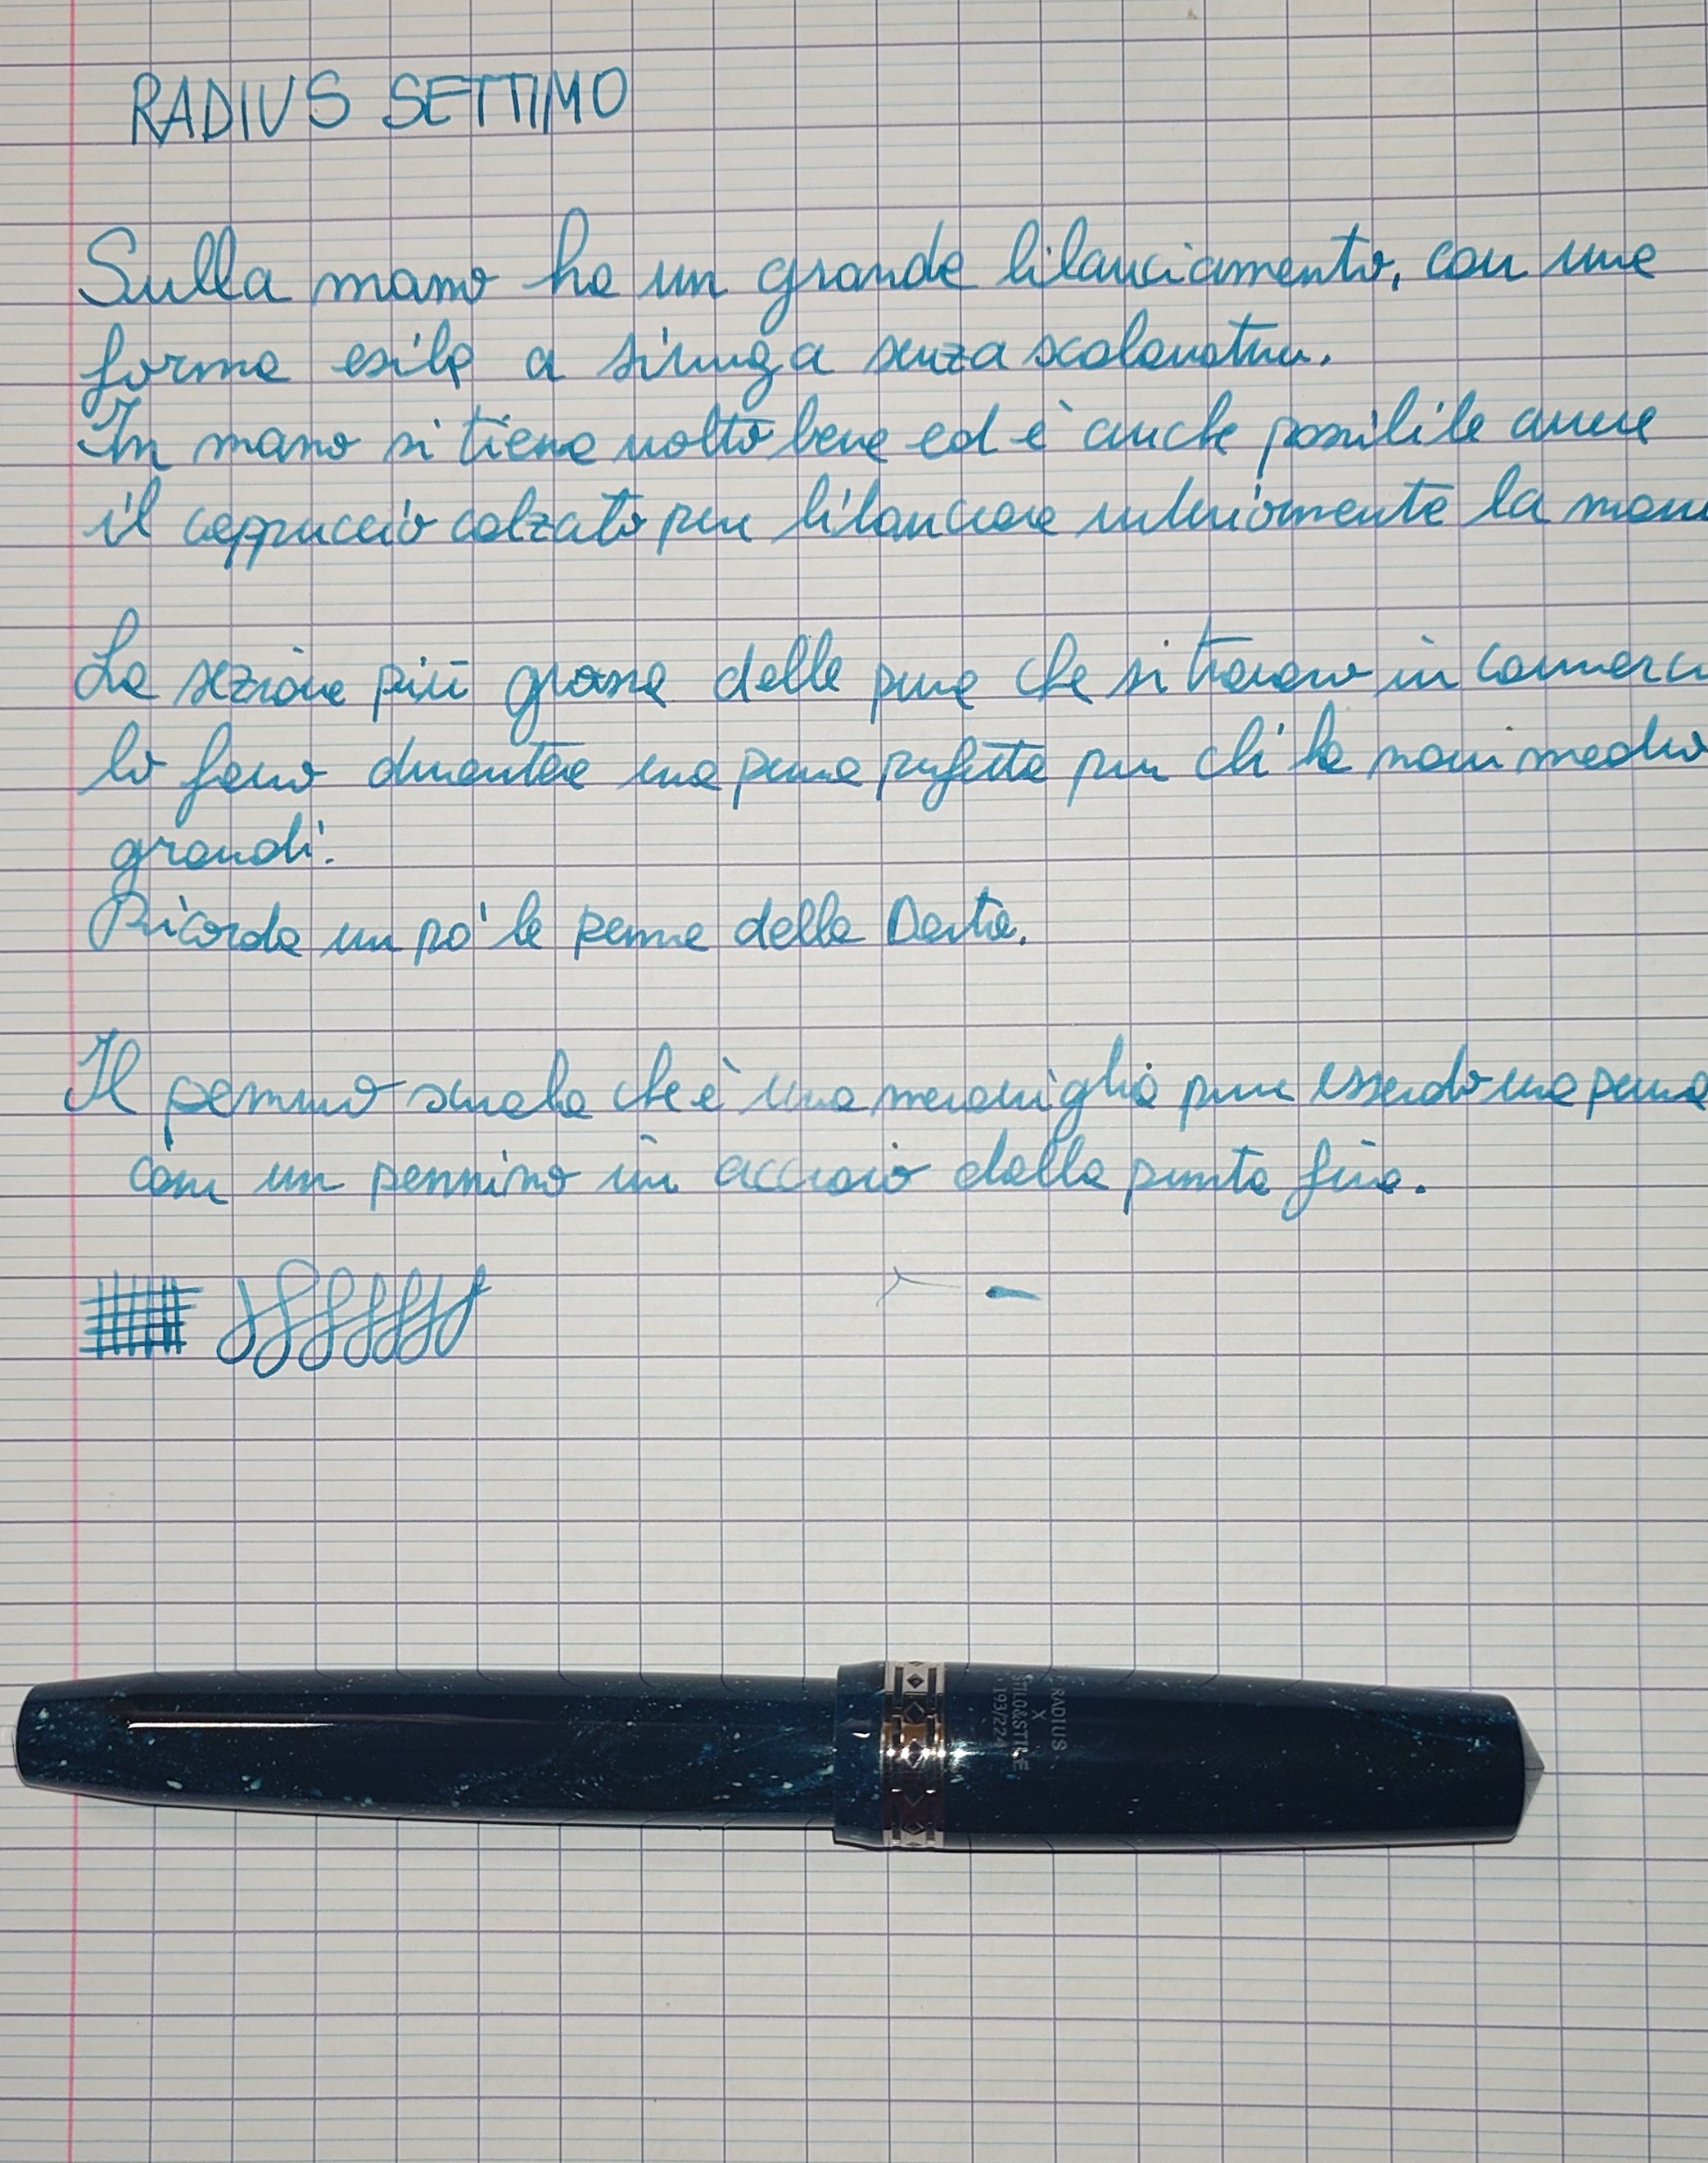 RADIUS SETTIMO
Sulla mano ha un grande bilanciamento, con una
forma esile a siringa senza scalanatura.
In mano si tiene molto bene ed è anche possibile avere
il cappuccio calzato per bilanciare ulteriormente la
La sezione più grossa delle penne che si trovano in
lo fanno diventare una penna perfetta per chi ha mani medio
grandi.
Ricorda un po' le penne della
Il pennino che è una meraviglia pur essendo una penna
con un pennino in acciaio dalla punta fine.
RADIUS
X
STILO&STILE
193/224